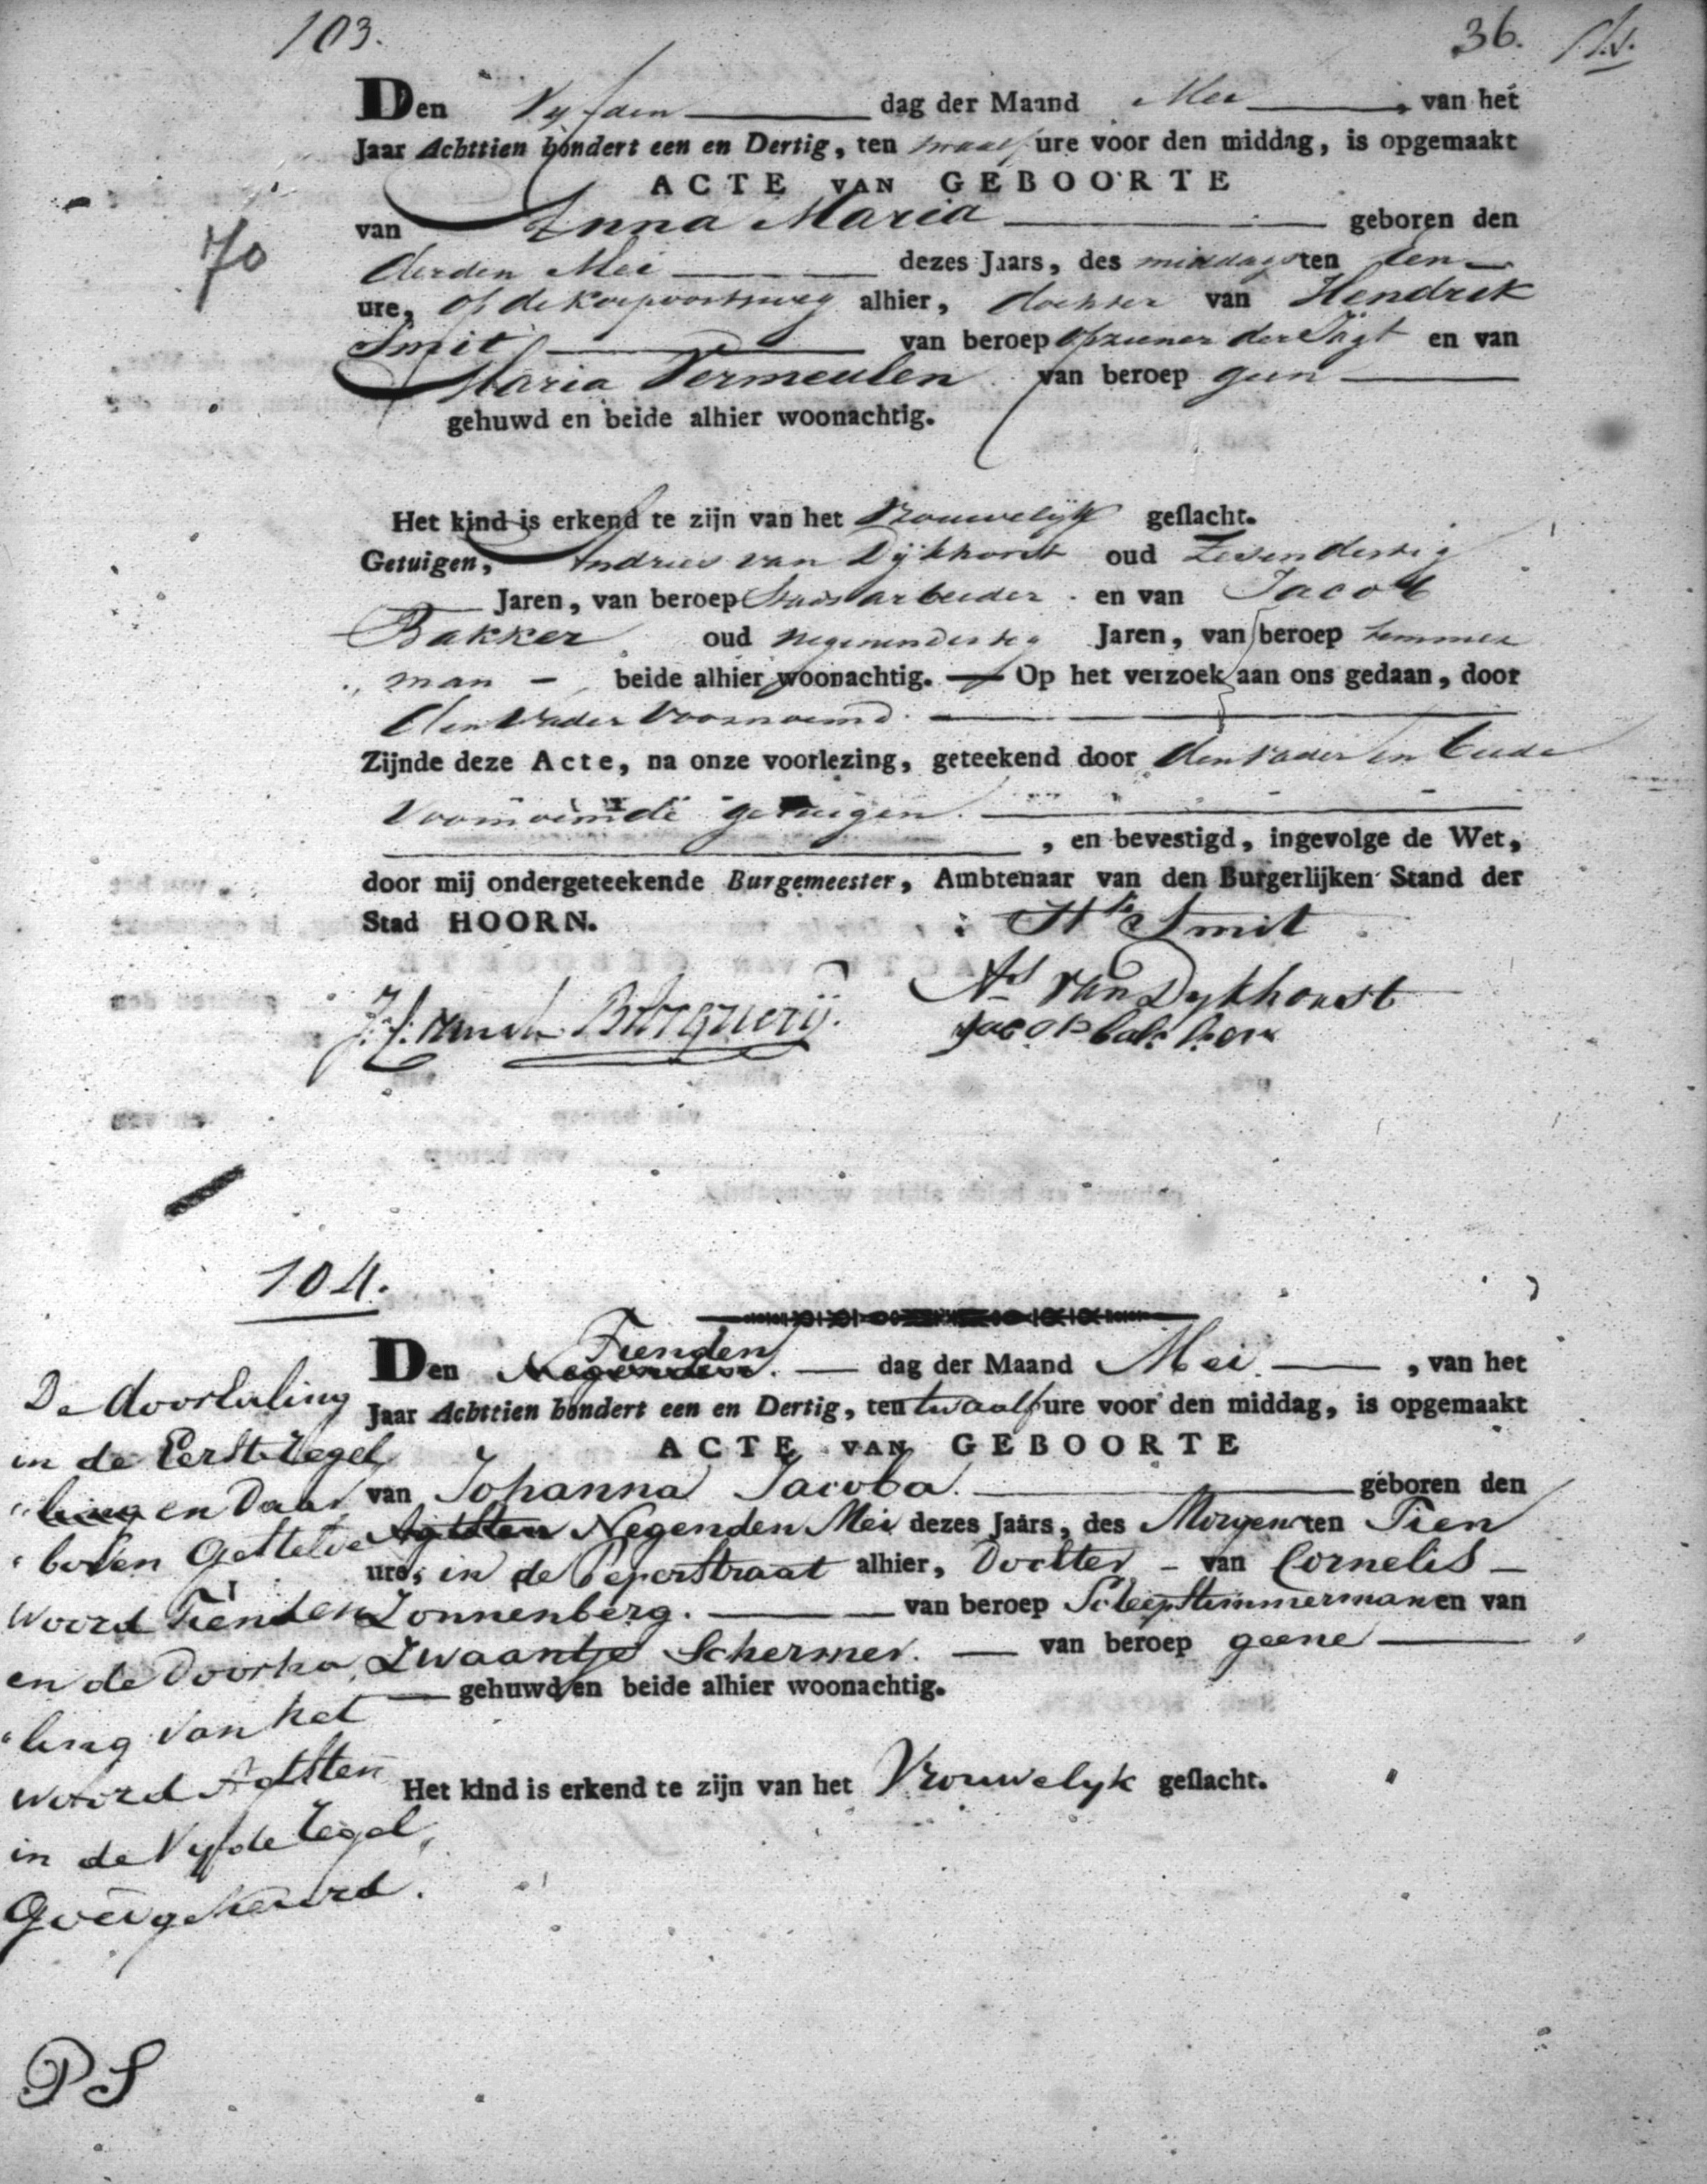 103.
36.
Den Vyfden dag der Maand Mei, van het
Jaar Achttien hondert een en Dertig, ten twaalf ure voor den middag, is opgemaakt
ACTE VAN GEBOORTE
van Anna Maria geboren den
70
derden Mei dezes Jaars, des middags ten een
ure, op de Koepoortsweg alhier, dochter van Hendrik
Smit van beroep opziener der Jagt en van
Maria Vermeulen van beroep geen
gehuwd en beide alhier woonachtig.
Het kind is erkend te zijn van het Vrouwelijk geslacht.
Getuigen, Andries van Dijkhorst oud Zevendertig
Jaren, van beroep Stads arbeider en van Jacob
Bakker oud negenendertig Jaren, van beroep timmer
man beide alhier woonachtig. — Op het verzoek aan ons gedaan, door
den Vader voornoemd.
Zijnde deze Acte, na onze voorlezing, geteekend door den vader en beide
voornoemde getuigen.
, en bevestigd, ingevolge de Wet,
door mij ondergeteekende Burgemeester, Ambtenaar van den Burgerlijken Stand der
Stad HOORN.
Hk Smit
As van Dykhorst
Jacob bakker
104.
Den Negenden Tienden dag der Maand Mei, van het
Jaar Achttien hondert een en Dertig, ten twaalf ure voor den middag, is opgemaakt
ACTE VAN GEBOORTE
van Johanna Jacoba. geboren den
Agtsten Negenden Mei dezes Jaars, des Morgens ten Tien
ure, in de Peperstraat alhier, Dochter van Cornelis
Zonnenberg. van beroep Scheepstimmerman en van
Zwaantje Schermer. van beroep geene
gehuwd en beide alhier woonachtig.
Het kind is erkend te zijn van het Vrouwelyk geslacht.
De doorhaling
in de Eerste regel
en Daar
boven Gestelde
woord Tienden
en de Doorha
ling van het
woord Agtsten
in de Vyfde regel
Goedgekeurd.
PS